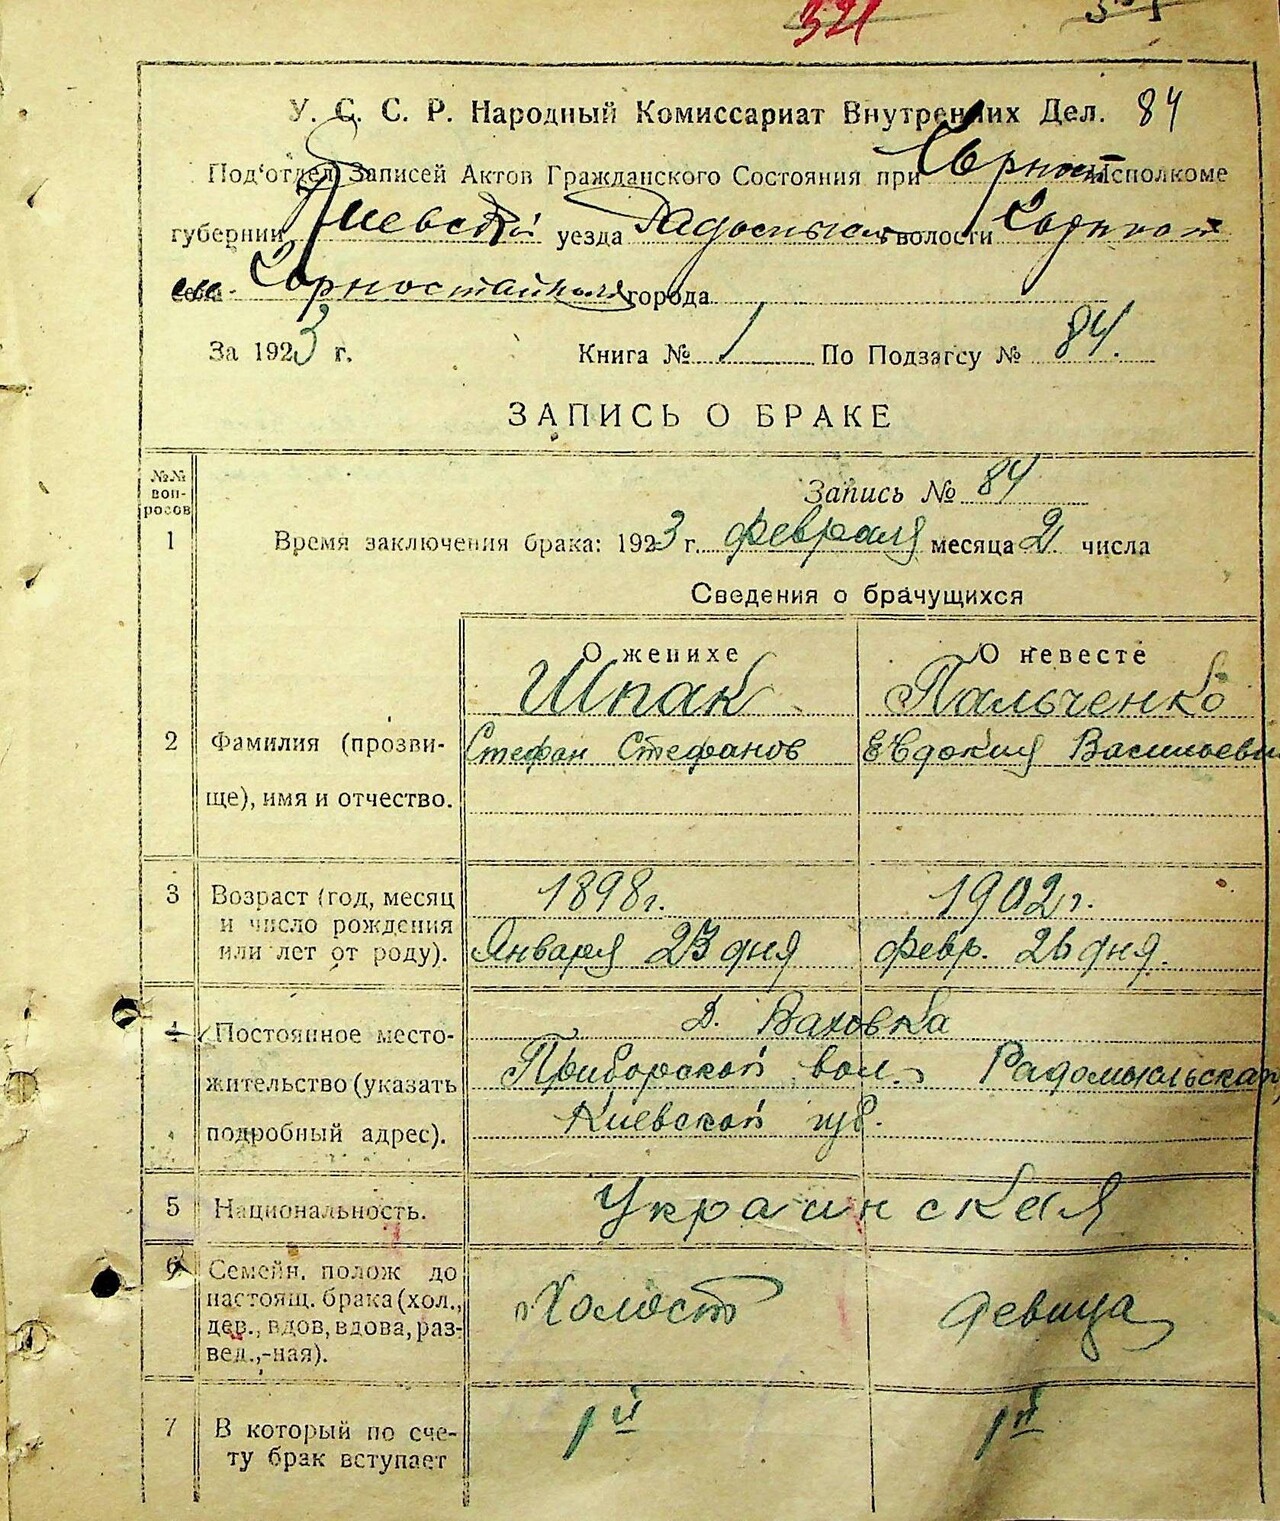 321
У. С. С. Р. Народный Комиссариат Внутренних Дел. 84
Под'отдел Записей Актов Гражданского Состояния при Исполкоме
губернии Киевской уезда волости
Горностайполя города
За 1923 г. Книга № 1 По Подзагсу № 84.
ЗАПИСЬ О БРАКЕ
№№ вопросов
Запись № 84
1 Время заключения брака: 1923 г. февраля месяца 2 числа
Сведения о брачущихся
О женихе О невесте
Шпак Пальченко
2 Фамилия (прозви- Стефан Стефанов Евдокия Васильевн
ще), имя и отчество.
3 Возраст (год, месяц 1898 г. 1902 г.
и число рождения
или лет от роду). Января 23 дня февр. 26 дня.
Д. Ваховка
4 Постоянное место-
жительство (указать Приборской вол. Радомысльская
подробный адрес). Киевской губ.
5 Национальность. Украинская
6 Семейн. полож до
настоящ. брака (хол., Холост девица
дев., вдов, вдова, раз-
вед.,-ная).
7 В который по сче- 1й 1й
ту брак вступает